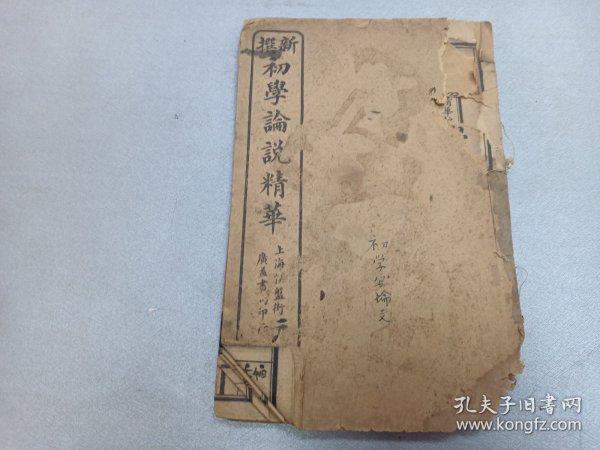 新撰
初學論說精華
上海棋盤街
廣益書局印行
初学
论文
孔夫子旧书网
www.kongfz.com